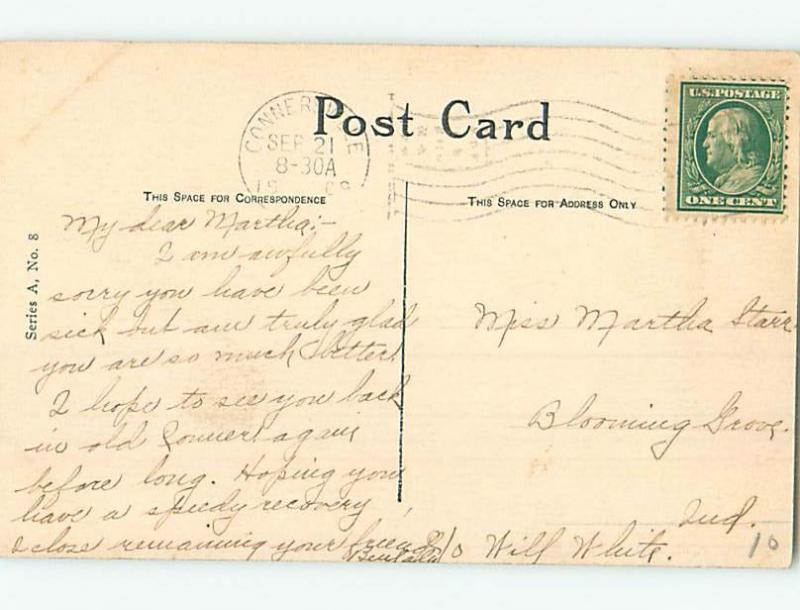 Post Card
CONNERSVILLE
SEP 21
8-30A
U.S. POSTAGE
ONE CENT
THIS SPACE FOR CORRESPONDENCE
THIS SPACE FOR ADDRESS ONLY
Series A, No. 8
My dear Martha:-
I am awfully
sorry you have been
sick but am truly glad
you are so much better.
I hope to see you back
in old Conners. again
before long. Hoping you
have a speedy recovery,
I close remaining your friend
Miss Martha Starr.
Blooming Grove.
Ind.
c/o Will White.
10